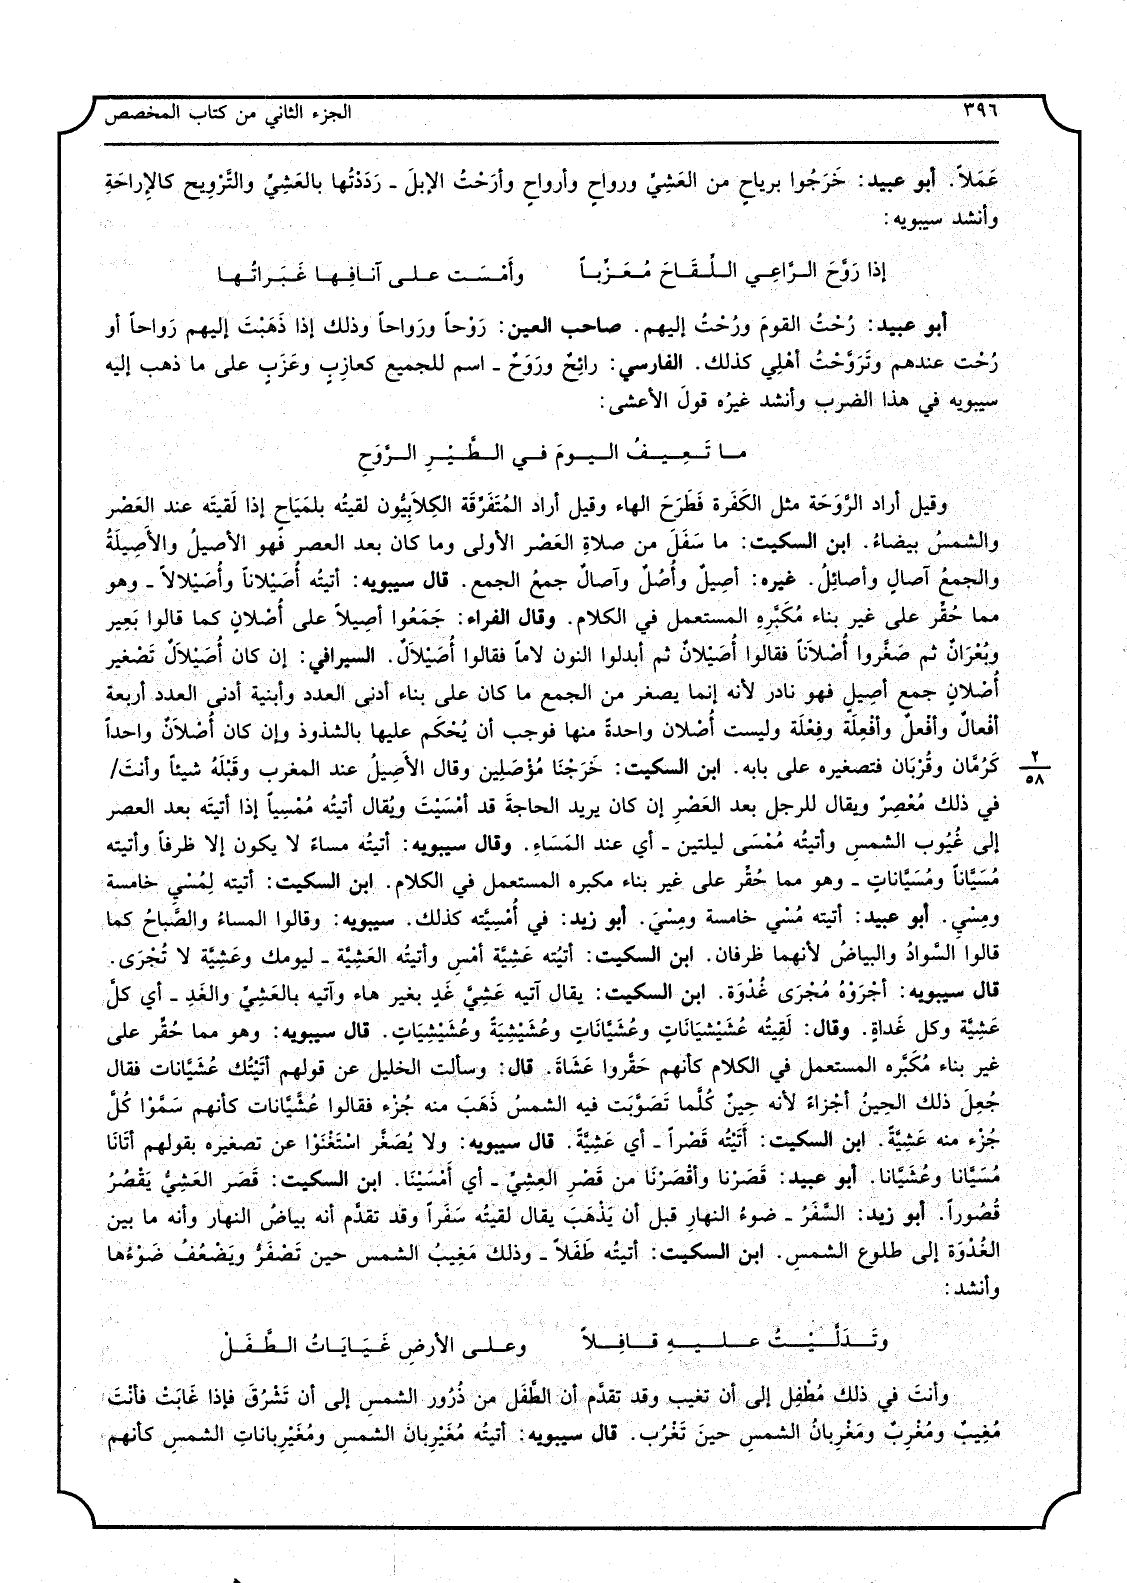 ٣٩٦
الجزء الثاني من كتاب المخصص
عَمَلاً. أبو عبيد: خَرَجُوا برياحٍ من العَشِيِّ ورواحٍ وأرواحٍ وأرَحْتُ الإبلَ ـ رَدَدْتُها بالعَشِيِّ والتَّرْوِيح كالإراحَةِ
وأنشد سيبويه:
إذا رَوَّحَ الـرَّاعِي اللِّقَاحَ مُعَزِّبـاً وأَمْسَت على آنافِها غَبَراتُها
أبو عبيد: رُحْتُ القومَ ورُحْتُ إليهم. صاحب العين: رَوْحاً ورَواحاً وذلك إذا ذَهَبْتَ إليهم رَواحاً أو
رُحْت عندهم وتَرَوَّحْتُ أهْلِي كذلك. الفارسي: رائحٌ ورَوَحٌ ـ اسم للجميع كعازِبٍ وعَزَبٍ على ما ذهب إليه
سيبويه في هذا الضرب وأنشد غيرُه قولَ الأعشى:
ما تَعِيفُ اليومَ في الطَّيْرِ الرَّوَحِ
وقيل أراد الرَّوَحَة مثل الكَفَرة فَطَرَحَ الهاء وقيل أراد المُتَفَرِّقَة الكِلابِيُّون لقيتُه بلمَيَاحٍ إذا لَقيتَه عند العَصْر
والشمسُ بيضاءُ. ابن السكيت: ما سَفَلَ من صلاةِ العَصْر الأولى وما كان بعد العصر فهو الأصيلُ والأَصِيلَةُ
والجمعُ آصالٍ وأصائلُ. غيره: أصِيلٌ وأُصُلٌ وآصالٌ جمعُ الجمع. قال سيبويه: أتيتُه أُصَيْلاناً وأُصَيْلالاً ـ وهو
مما حُقِّر على غير بناء مُكَبَّرِهِ المستعمل في الكلام. وقال الفراء: جَمَعُوا أصِيلاً على أُصْلانٍ كما قالوا بَعِير
وبُعْرَانٌ ثم صَغَّروا أُصْلاَناً فقالوا أُصَيْلانٌ ثم أبدلوا النون لاماً فقالوا أُصَيْلاَلٌ. السيرافي: إن كان أُصَيْلاَلٌ تَصْغير
أُصْلانٍ جمع أصِيلٍ فهو نادر لأنه إنما يصغر من الجمع ما كان على بناء أدنى العدد وأبنية أدنى العدد أربعة
أفْعالٌ وأفْعلٌ وأفْعِلَة وفِعْلَة وليست أُصْلان واحدةً منها فوجب أن يُحْكَم عليها بالشذوذ وإن كان أُصْلاَنٌ واحداً
كَرُمَّان وقُرْبَان فتصغيره على بابه. ابن السكيت: خَرَجْنَا مُؤْصَلِين وقال الأَصِيلُ عند المغرب وقَبْلَهُ شيئاً وأنتَ/
٢
٥٨
في ذلك مُعْصِرٌ ويقال للرجل بعد العَصْرِ إن كان يريد الحاجةَ قد أمْسَيْتَ ويُقال أتيتُه مُمْسِياً إذا أتيتَه بعد العصر
إلى غُيُوب الشمسِ وأتيتُه مُمْسَى ليلتين ـ أي عند المَسَاءِ. وقال سيبويه: أتيتُه مساءً لا يكون إلا ظرفاً وأتيته
مُسَيَّاناً ومُسَيَّاناتٍ ـ وهو مما حُقِّر على غير بناء مكبره المستعمل في الكلام. ابن السكيت: أتيته لِمُسْيِ خامسة
ومِسْيِ. أبو عبيد: أتيته مُسْي خامسة ومِسْيَ. أبو زيد: في أُمْسِيَّته كذلك. سيبويه: وقالوا المساءُ والصَّباحُ كما
قالوا السَّوادُ والبياضُ لأنهما ظرفان. ابن السكيت: أتيتُه عَشِيَّةَ أمْسِ وأتيتُه العَشِيَّة ـ ليومك وعَشِيَّة لا تُجْرَى.
قال سيبويه: أجْرَوْهُ مُجْرَى غُدْوَة. ابن السكيت: يقال آتيه عَشِيَّ غَدٍ بغير هاء وآتيه بالعَشِيِّ والغَدِ ـ أي كلَّ
عَشِيَّة وكل غَداةٍ. وقال: لَقِيتُه عُشَيْشِيَانَاتٍ وعُشَيَّانَاتٍ وعُشَيْشِيَةً وعُشَيْشِيَاتٍ. قال سيبويه: وهو مما حُقِّر على
غير بناء مُكَبَّره المستعمل في الكلام كأنهم حَقَّروا عَشَاةَ. قال: وسألت الخليل عن قولهم أتَيْتُك عُشَيَّانات فقال
جُعِلَ ذلك الحِينُ أجْزاءً لأنه حِينٌ كُلَّما تَصَوَّبَت فيه الشمسُ ذَهَبَ منه جُزْء فقالوا عُشَيَّانات كأنهم سَمَّوْا كُلَّ
جُزْء منه عَشِيَّةً. ابن السكيت: أَتَيْتُه قَصْراً ـ أي عَشِيَّةً. قال سيبويه: ولا يُصَغَّر اسْتَغْنَوْا عن تصغيره بقولهم أتَانَا
مُسَيَّانا وعُشَيَّانا. أبو عبيد: قَصَرْنا وأقْصَرْنَا من قَصْرِ العِشِيِّ ـ أي أَمْسَيْنَا. ابن السكيت: قَصَر العَشِيُّ يَقْصُرُ
قُصُوراً. أبو زيد: السَّفَرُ ـ ضوءُ النهارِ قبل أن يَذْهَبَ يقال لقيتُه سَفَراً وقد تقدَّم أنه بياضُ النهار وأنه ما بين
الغُدْوَة إلى طلوع الشمسِ. ابن السكيت: أتيتُه طَفَلاً ـ وذلك مَغِيبُ الشمس حين تَصْفَرُّ ويَضْعُفُ ضَوْءُها
وأنشد:
وتَدَلَّيْتُ عليهِ قافِلاً وعلى الأرضِ غَيَايَاتُ الطَّفَلْ
وأنتَ في ذلك مُطْفِل إلى أن تغيب وقد تقدَّم أن الطَّفَل من ذُرُور الشمسِ إلى أن تَشْرُقَ فإذا غَابَتْ فأنْتَ
مُغِيبٌ ومُغْرِبٌ ومَغْرِبانُ الشمسِ حينَ تَغْرُب. قال سيبويه: أتيتُه مُغَيْرِبانَ الشمسِ ومُغَيْرِباناتِ الشمسِ كأنهم